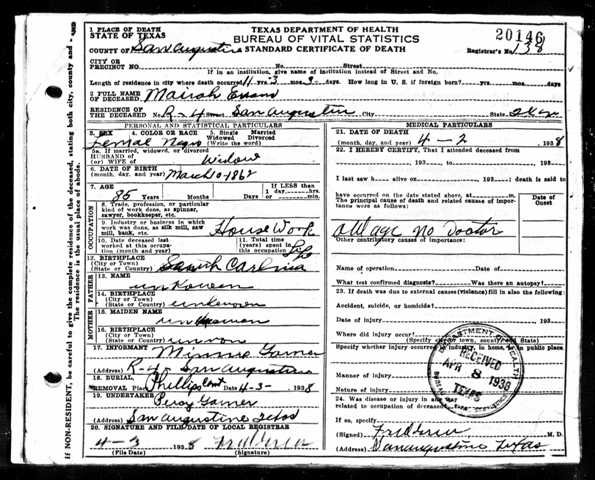 1 PLACE OF DEATH
STATE OF TEXAS
TEXAS DEPARTMENT OF HEALTH
BUREAU OF VITAL STATISTICS
STANDARD CERTIFICATE OF DEATH
20146
COUNTY OF San Augustine
Registrar's No. 138
CITY OR
PRECINCT NO. No. Street
If in an institution, give name of institution instead of Street and No.
Length of residence in city where death occurred yrs. mos. days. How long in U. S. if foreign born? yrs. mos. days
2 FULL NAME
OF DECEASED Mairah Evans
RESIDENCE OF
THE DECEASED No. R-4 San Augustine City State Texas
PERSONAL AND STATISTICAL PARTICULARS
3. SEX 4. COLOR OR RACE 5. Single Married
Widowed Divorced
Femal Negro (Write the word)
5a. If married, widowed, or divorced
HUSBAND OF
(or) WIFE OF Widow
6. DATE OF BIRTH
(month, day, and year) March 10 1862
7. AGE If LESS than
1 day
85 Years Months Days hrs. or min.
OCCUPATION
8. Trade, profession, or particular
kind of work done, as spinner,
sawyer, bookkeeper, etc.
9. Industry or business in which
work was done, as silk mill, saw
mill, bank, etc. House Work
10. Date deceased last
worked at this occupa-
tion (month and year)
11. Total time
(years) spent in
this occupation
12. BIRTHPLACE
(City or Town)
(State or County) South Carlina
FATHER
13. NAME
14. BIRTHPLACE
(City or Town)
(State or County)
MOTHER
15. MAIDEN NAME
16. BIRTHPLACE
(City or Town)
(State or County)
17. INFORMANT Minnie Garner
(Address) R-4 San Augustine
18. BURIAL
REMOVAL Place Phillips Date 4-3- 1938
19. UNDERTAKER
Percy Garner
(Address) San Augustine Texas
20. SIGNATURE AND FILE DATE OF LOCAL REGISTRAR
4-3 1938
(File Date) (Signature)
MEDICAL PARTICULARS
21. DATE OF DEATH
(month, day, and year) 4-2 1938
22. I HEREBY CERTIFY, That I attended deceased from
193 to 193
I last saw h alive on 193 death is said to
have occurred on the date stated above, at m.
The principal cause of death and related causes of impor-
tance were as follows:
Date of
Onset
Old age no Doctor
Other contributory causes of importance:
Name of operation
What test confirmed diagnosis? Was there an autopsy?
23. If death was due to external causes (violence) fill in also the following
Accident, suicide, or homicide?
Date of injury 193
Where did injury occur?
(Specify city, town, county, and state)
Specify whether injury occurred in industry, in home, or in public place
Manner of injury
Nature of injury
24. Was disease or injury in any way
related to occupation of deceased?
If so, specify
(Signed) M. D.
(Address) San augustine Texas
DEPARTMENT OF HEALTH
RECEIVED
APR 8 1938
TEXAS
If NON-RESIDENT, be careful to give the complete residence of the deceased, stating both city, county and
The residence is the usual place of abode.